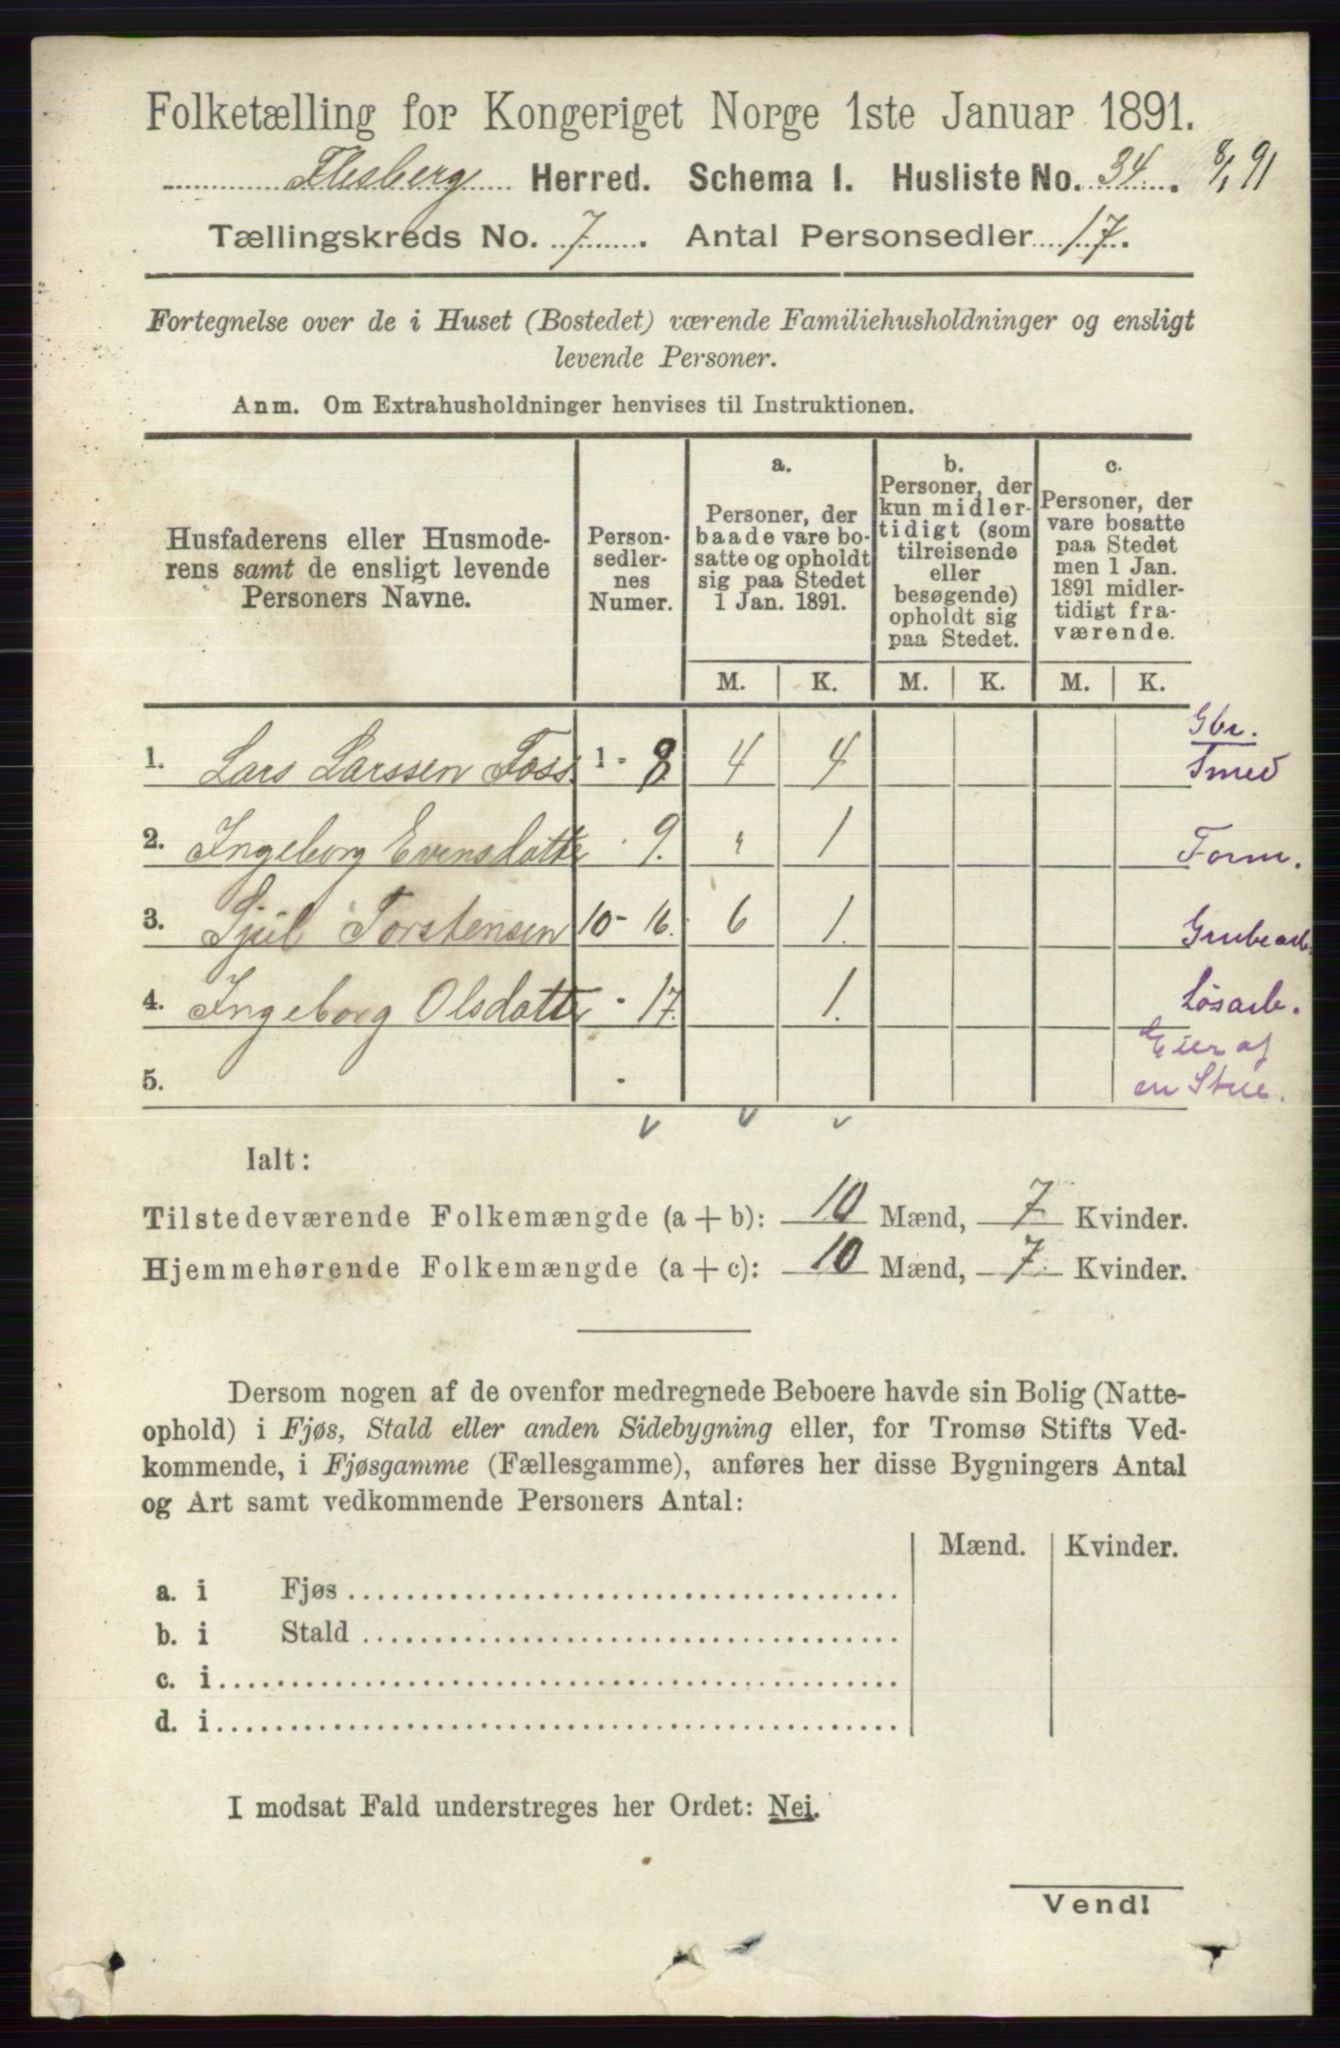 Folketælling for Kongeriget Norge 1ste Januar 1891.
Flesberg Herred. Schema I. Husliste No. 34. 8/1 91
Tællingskreds No. 7. Antal Personsedler 17.
Fortegnelse over de i Huset (Bostedet) værende Familiehusholdninger og ensligt
levende Personer.
Anm. Om Extrahusholdninger henvises til Instruktionen.
Husfaderens eller Husmode-
rens samt de ensligt levende
Personers Navne.
Person-
sedler-
nes
Numer.
a.
Personer, der
baade vare bo-
satte og opholdt
sig paa Stedet
1 Jan. 1891.
b.
Personer, der
kun midler-
tidigt (som
tilreisende
eller
besøgende)
opholdt sig
paa Stedet.
c.
Personer, der
vare bosatte
paa Stedet
men 1 Jan.
1891 midler-
tidigt fra-
værende.
M. K. M. K. M. K.
1. Lars Larssen Foss 1 - 8 4 4 Gbr. Smed
2. Ingeborg Evensdatter - 9. " 1 Form.
3. Sjul Torstensen 10 - 16. 6 1. Grubearb.
4. Ingeborg Olsdatter - 17. 1. Løsarb.
Eier af
en Stue.
5. -
Ialt:
Tilstedeværende Folkemængde (a + b): 10 Mænd, 7 Kvinder.
Hjemmehørende Folkemængde (a + c): 10 Mænd, 7 Kvinder.
Dersom nogen af de ovenfor medregnede Beboere havde sin Bolig (Natte-
ophold) i Fjøs, Stald eller anden Sidebygning eller, for Tromsø Stifts Ved-
kommende, i Fjøsgamme (Fællesgamme), anføres her disse Bygningers Antal
og Art samt vedkommende Personers Antal:
Mænd. Kvinder.
a. i Fjøs
b. i Stald
c. i
d. i
I modsat Fald understreges her Ordet: Nei.
Vend!